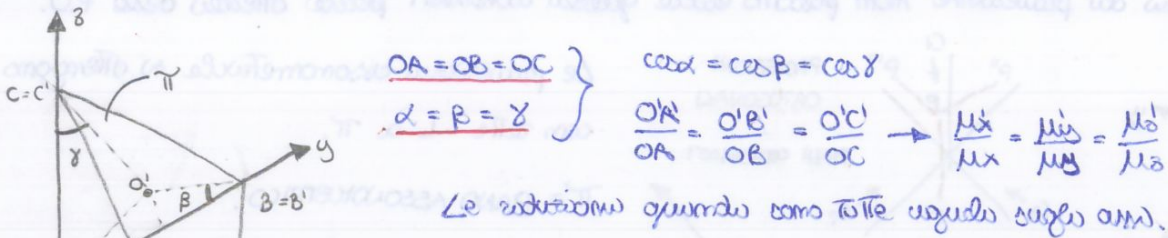 z
C=C'
π
γ
O'
β
y
B=B'
OA = OB = OC
α = β = γ
cosα = cosβ = cosγ
O'A'/OA = O'B'/OB = O'C'/OC → μx'/μx = μy'/μy = μz'/μz
Le riduzioni quindi sono tutte uguali sugli assi.